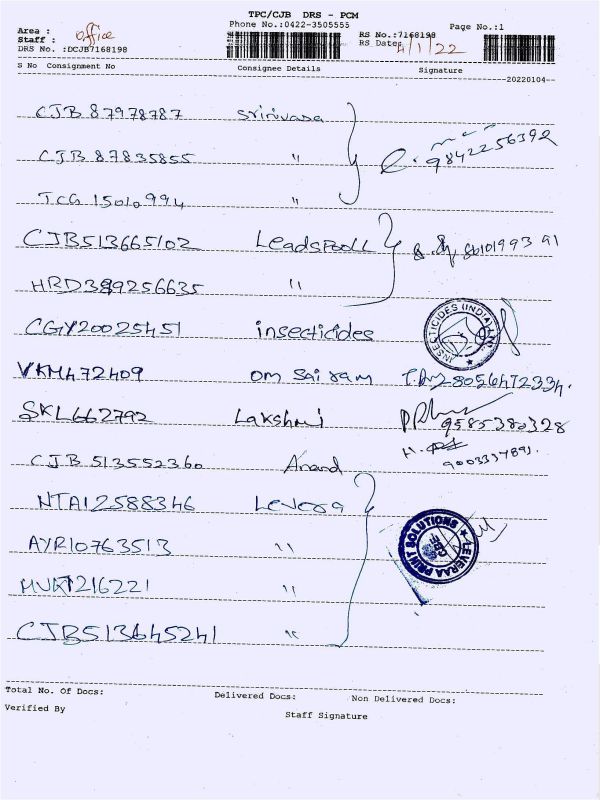 TPC/CJB DRS - PCM
Phone No.:0422-3505555
Page No.:1
Area : office
Staff :
DRS No. :DCJB7168198
RS No.:7168198
RS Date: 4/1/22
S No Consignment No Consignee Details Signature
20220104
CJB 87978787 Srinivasa
CJB 87835855 " 9842256392
TCG 15010994 "
CJB513665102 Leadspool
HRD389256635 "
CGY20025451 insecticides
INSECTICIDES (INDIA) LTD
VKM472409 om Sai ram 28056472334.
SKL662792 Lakshmi 9585380328
CJB 513552360 Anand 9003337891.
NTA12588346 Levera
LEVERAA PRINT SOLUTIONS
CBE
AYR10763513 "
MUK7216221 "
CJB513645241 "
Total No. Of Docs: Delivered Docs: Non Delivered Docs:
Verified By
Staff Signature